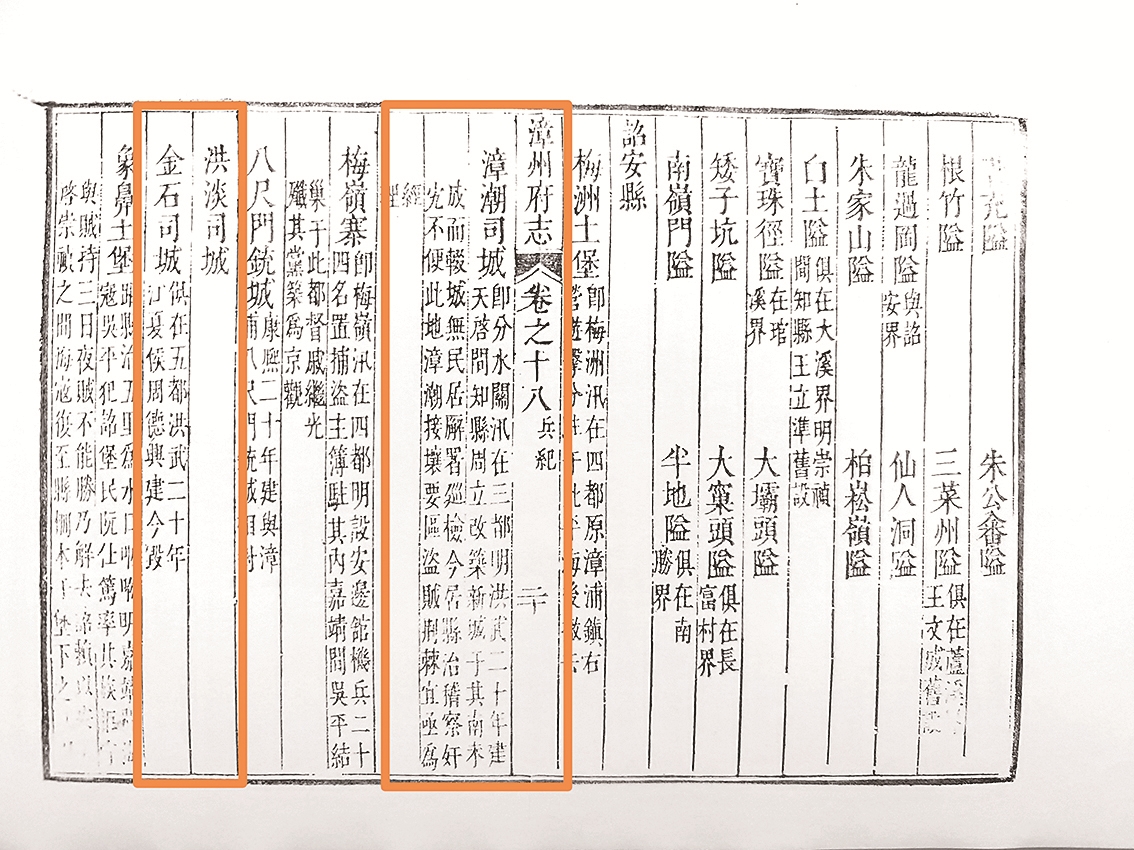 充隘 朱公畬隘
根竹隘 三菜州隘 俱在蘆溪
王文成舊設
龍過岡隘 與詔
安界 仙人洞隘
朱家山隘 柏嵩嶺隘
白土隘 俱在大溪界明崇禎
間知縣王立準舊設
寶珠徑隘 在琯
溪界 大壩頭隘
矮子坑隘 大窠頭隘 俱在長
富村界
南嶺門隘 半地隘 俱在南
勝界
詔安縣
梅洲土堡 即梅洲汛在四都原漳浦鎮右
營遊擊分駐于此平海後撤去
漳州府志 卷之十八 兵紀 二十
漳潮司城 即分水關汛在三都明洪武二十年建
天啓間知縣周立改築新城于其南未
成而輟城無民居廨署巡檢今居縣治稽察奸
宄不便此地漳潮接壤要區盜賊荆棘宜亟爲
經
理
梅嶺寨 即梅嶺汛在四都明設安邊館機兵二十
四名置捕盜主簿駐其内嘉靖間吳平結
巢于此都督戚繼光
殲其黨築爲京觀
八尺門銃城 康熙二十年建與漳
浦八尺門銃城相對
洪淡司城
金石司城 俱在五都洪武二十年
江夏侯周德興建今毀
象鼻土堡 距縣治五里爲水口明嘉靖
寇吳平犯詔堡民阮仕篤率其族
與賊持三日夜賊不能勝乃解去
啓崇禎之間海寇復至縣